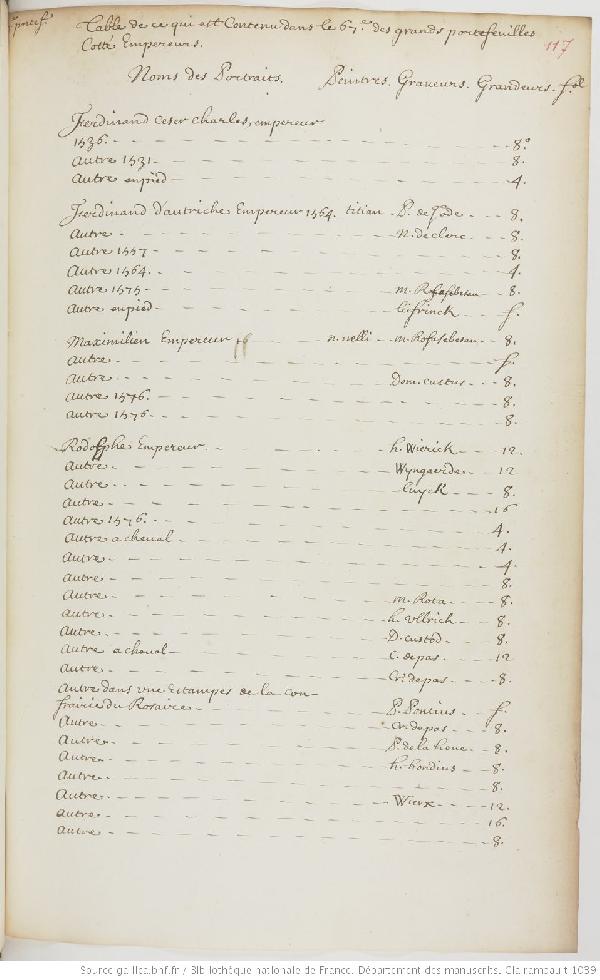 portef.
Table de ce qui est Contenu dans le 67.e des grands portefeuilles
Cotté Empereurs.
117
Noms des Portraits. Peintres. Graveurs. Grandeurs. fol
Ferdinand Ceser Charles, empereur
1536. 8.o
Autre 1531 8.
Autre en pied 4.
Ferdinand d'autriche Empereur 1564. titian P. de Jode 8.
Autre n. de clerc 8.
Autre 1557 8.
Autre 1564. 4.
Autre 1575 m. 8.
Autre en pied frinck f.
Maximilien Empereur n. nelli m. 8.
Autre f.
Autre Dom. custus 8.
Autre 1576. 8.
Autre 1576 8.
Rodolphe Empereur h. Wierick 12
Autre Wyngaerde 12
Autre Cuyck 8.
Autre 16
Autre 1576. 4.
Autre a cheval 4.
Autre 4
Autre 8.
Autre m. Rota 8.
Autre h. Vllrich 8.
Autre D. custod 8.
Autre a cheval C. de pas 12
Autre Cr. de pas 8.
Autre dans vne Estampes de la con
frairie du Rosaire P. Pontius f.
Autre Cr. de pas 8.
Autre P. de la houe 8.
Autre h. hondius 8.
Autre 8.
Autre Wierx 12.
Autre 16.
Autre 8.
Source gallica.bnf.fr / Bibliothèque nationale de France. Département des manuscrits. Clairambault 1039